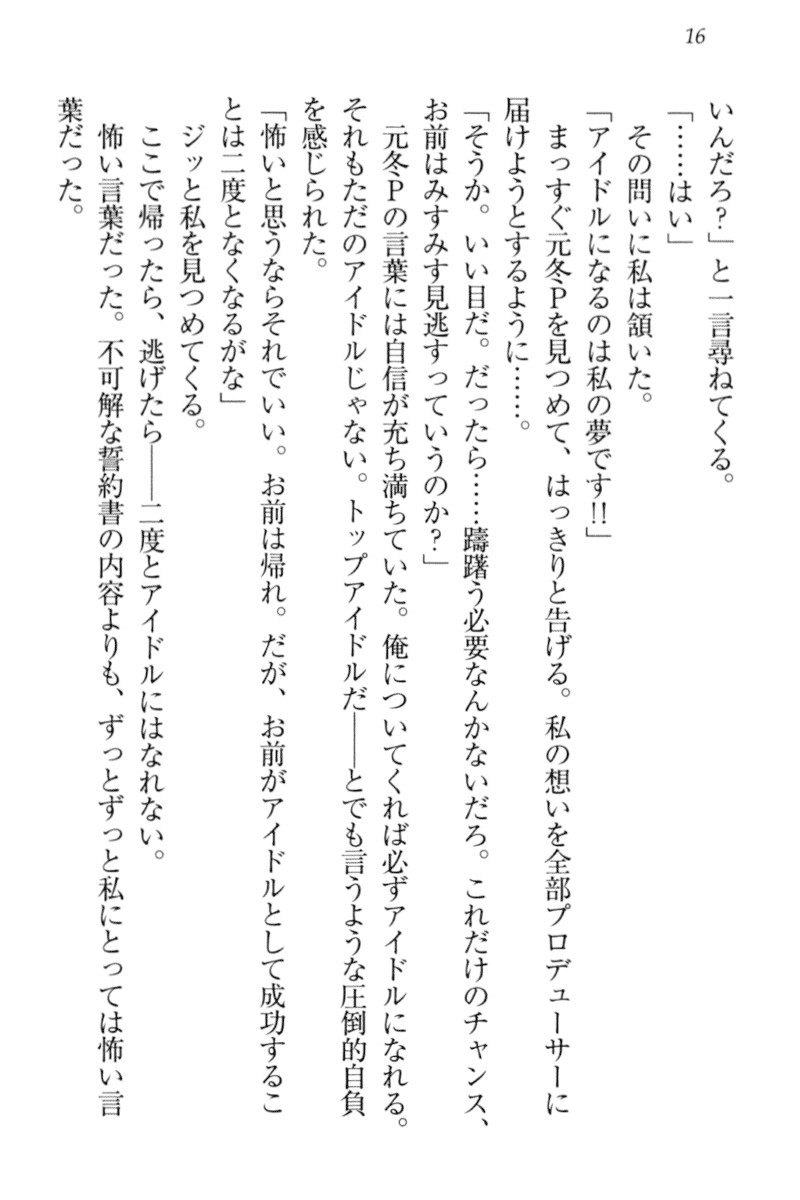 16
いんだろ？」と一言尋ねてくる。
「……はい」
　その問いに私は頷いた。
「アイドルになるのは私の夢です!!」
　まっすぐ元冬Pを見つめて、はっきりと告げる。私の想いを全部プロデューサーに
届けようとするように……。
「そうか。いい目だ。だったら……躊躇う必要なんかないだろ。これだけのチャンス、
お前はみすみす見逃すっていうのか？」
　元冬Pの言葉には自信が充ち満ちていた。俺についてくれば必ずアイドルになれる。
それもただのアイドルじゃない。トップアイドルだ――とでも言うような圧倒的自負
を感じられた。
「怖いと思うならそれでいい。お前は帰れ。だが、お前がアイドルとして成功するこ
とは二度となくなるがな」
　ジッと私を見つめてくる。
　ここで帰ったら、逃げたら――二度とアイドルにはなれない。
　怖い言葉だった。不可解な誓約書の内容よりも、ずっとずっと私にとっては怖い言
葉だった。